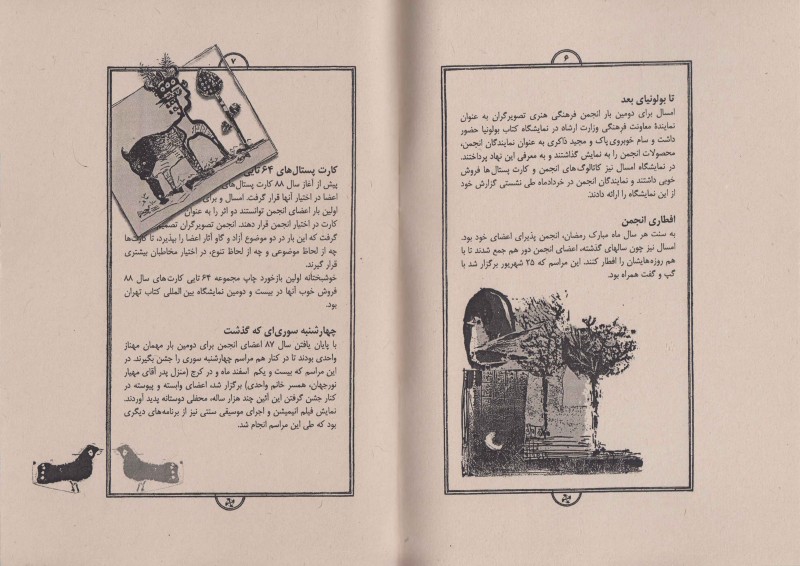 ۶
تا بولونیای بعد
امسال برای دومین بار انجمن فرهنگی هنری تصویرگران به عنوان
نمایندهٔ معاونت فرهنگی وزارت ارشاد در نمایشگاه کتاب بولونیا حضور
داشت و سام خوبروی‌پاک و مجید ذاکری به عنوان نمایندگان انجمن،
محصولات انجمن را به نمایش گذاشتند و به معرفی این نهاد پرداختند.
در نمایشگاه امسال نیز کاتالوگ‌های انجمن و کارت پستال‌ها فروش
خوبی داشتند و نمایندگان انجمن در خردادماه طی نشستی گزارش خود
از این نمایشگاه را ارائه دادند.
افطاری انجمن
به سنت هر سال ماه مبارک رمضان، انجمن پذیرای اعضای خود بود.
امسال نیز چون سالهای گذشته، اعضای انجمن دور هم جمع شدند تا با
هم روزه‌هایشان را افطار کنند. این مراسم که ۲۵ شهریور برگزار شد با
گپ و گفت همراه بود.
۷
کارت پستال‌های ۶۴ تایی
پیش از آغاز سال ۸۸ کارت پستال‌های
اعضا در اختیار آنها قرار گرفت. امسال و برای
اولین بار اعضای انجمن توانستند دو اثر را به عنوان
کارت در اختیار انجمن قرار دهند. انجمن تصویرگران تصمیم
گرفت که این بار در دو موضوع آزاد و گاو آثار اعضا را بپذیرد، تا کارت‌ها
چه از لحاظ موضوعی و چه از لحاظ تنوع، در اختیار مخاطبان بیشتری
قرار گیرند.
خوشبختانه اولین بازخورد چاپ مجموعه ۶۴ تایی کارت‌های سال ۸۸
فروش خوب آنها در بیست و دومین نمایشگاه بین‌المللی کتاب تهران
بود.
چهارشنبه سوری‌ای که گذشت
با پایان یافتن سال ۸۷ اعضای انجمن برای دومین بار مهمان مهناز
واحدی بودند تا در کنار هم مراسم چهارشنبه سوری را جشن بگیرند. در
این مراسم که بیست و یکم اسفند ماه و در کرج (منزل پدر آقای مهیار
نورجهان، همسر خانم واحدی) برگزار شد، اعضای وابسته و پیوسته در
کنار جشن گرفتن این آئین چند هزار ساله، محفلی دوستانه پدید آوردند.
نمایش فیلم انیمیشن و اجرای موسیقی سنتی نیز از برنامه‌های دیگری
بود که طی این مراسم انجام شد.